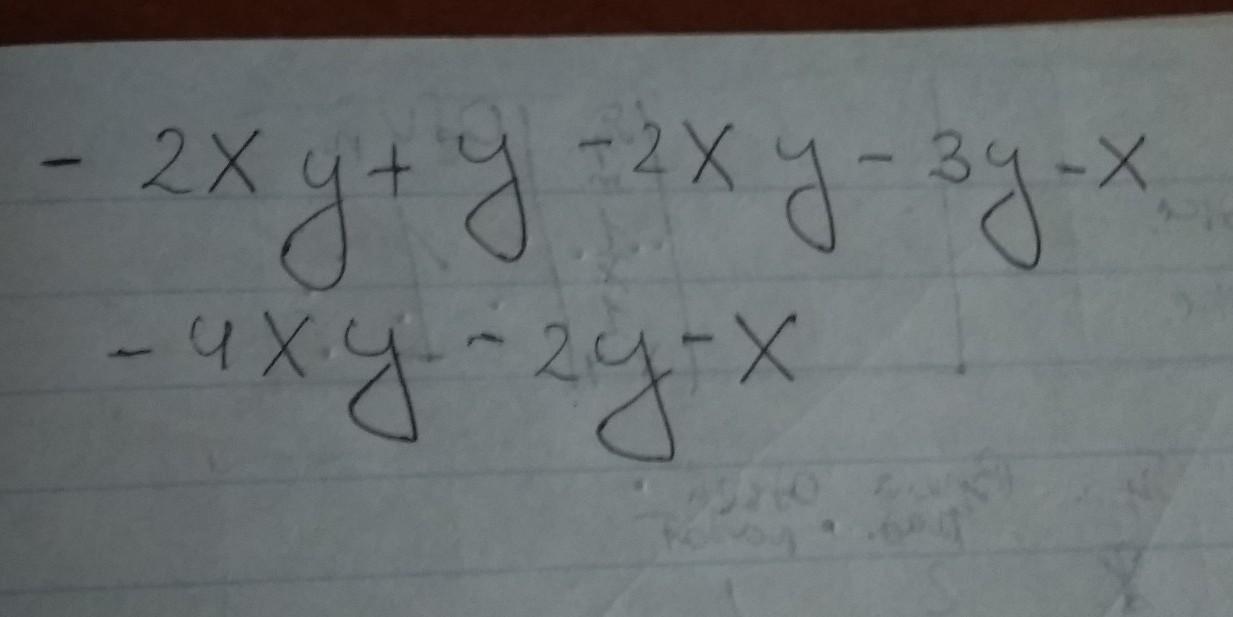 - 2xy + y - 2xy - 3y - x
- 4xy - 2y - x